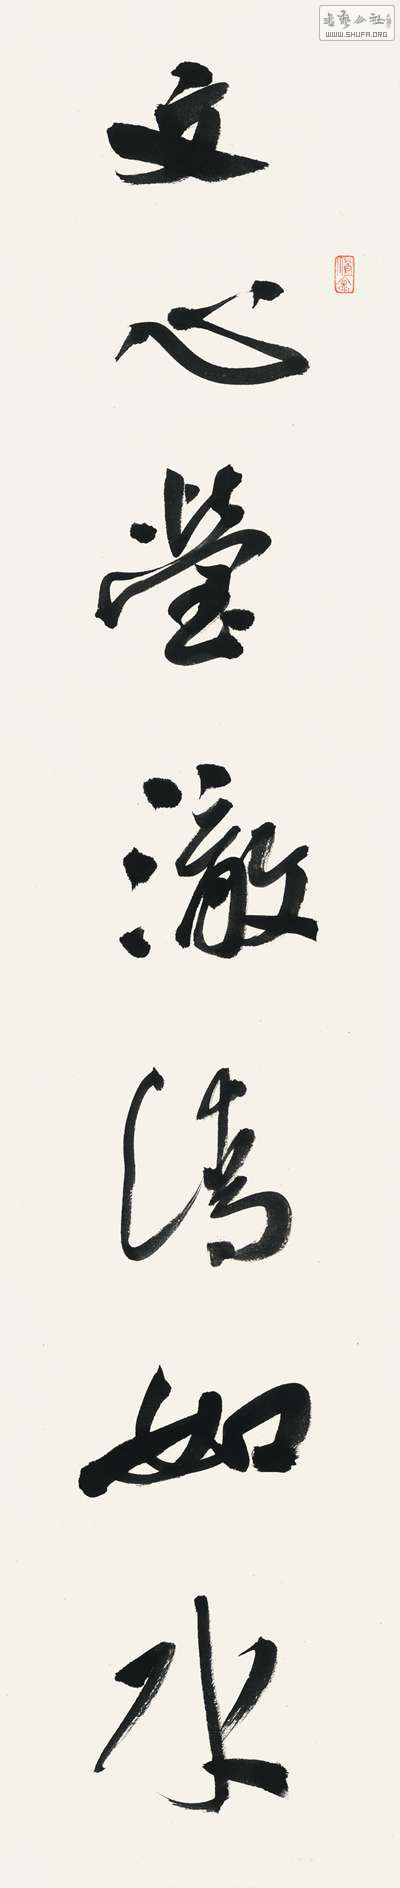 文心瑩澈清如水
書藝公社
WWW.SHUFA.ORG